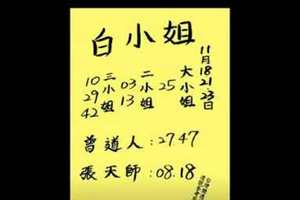 白小姐
11月18.21.23日
大小姐
25
二小姐
03
13
三小姐
10
29
42
曾道人:2747
張天師:08.18